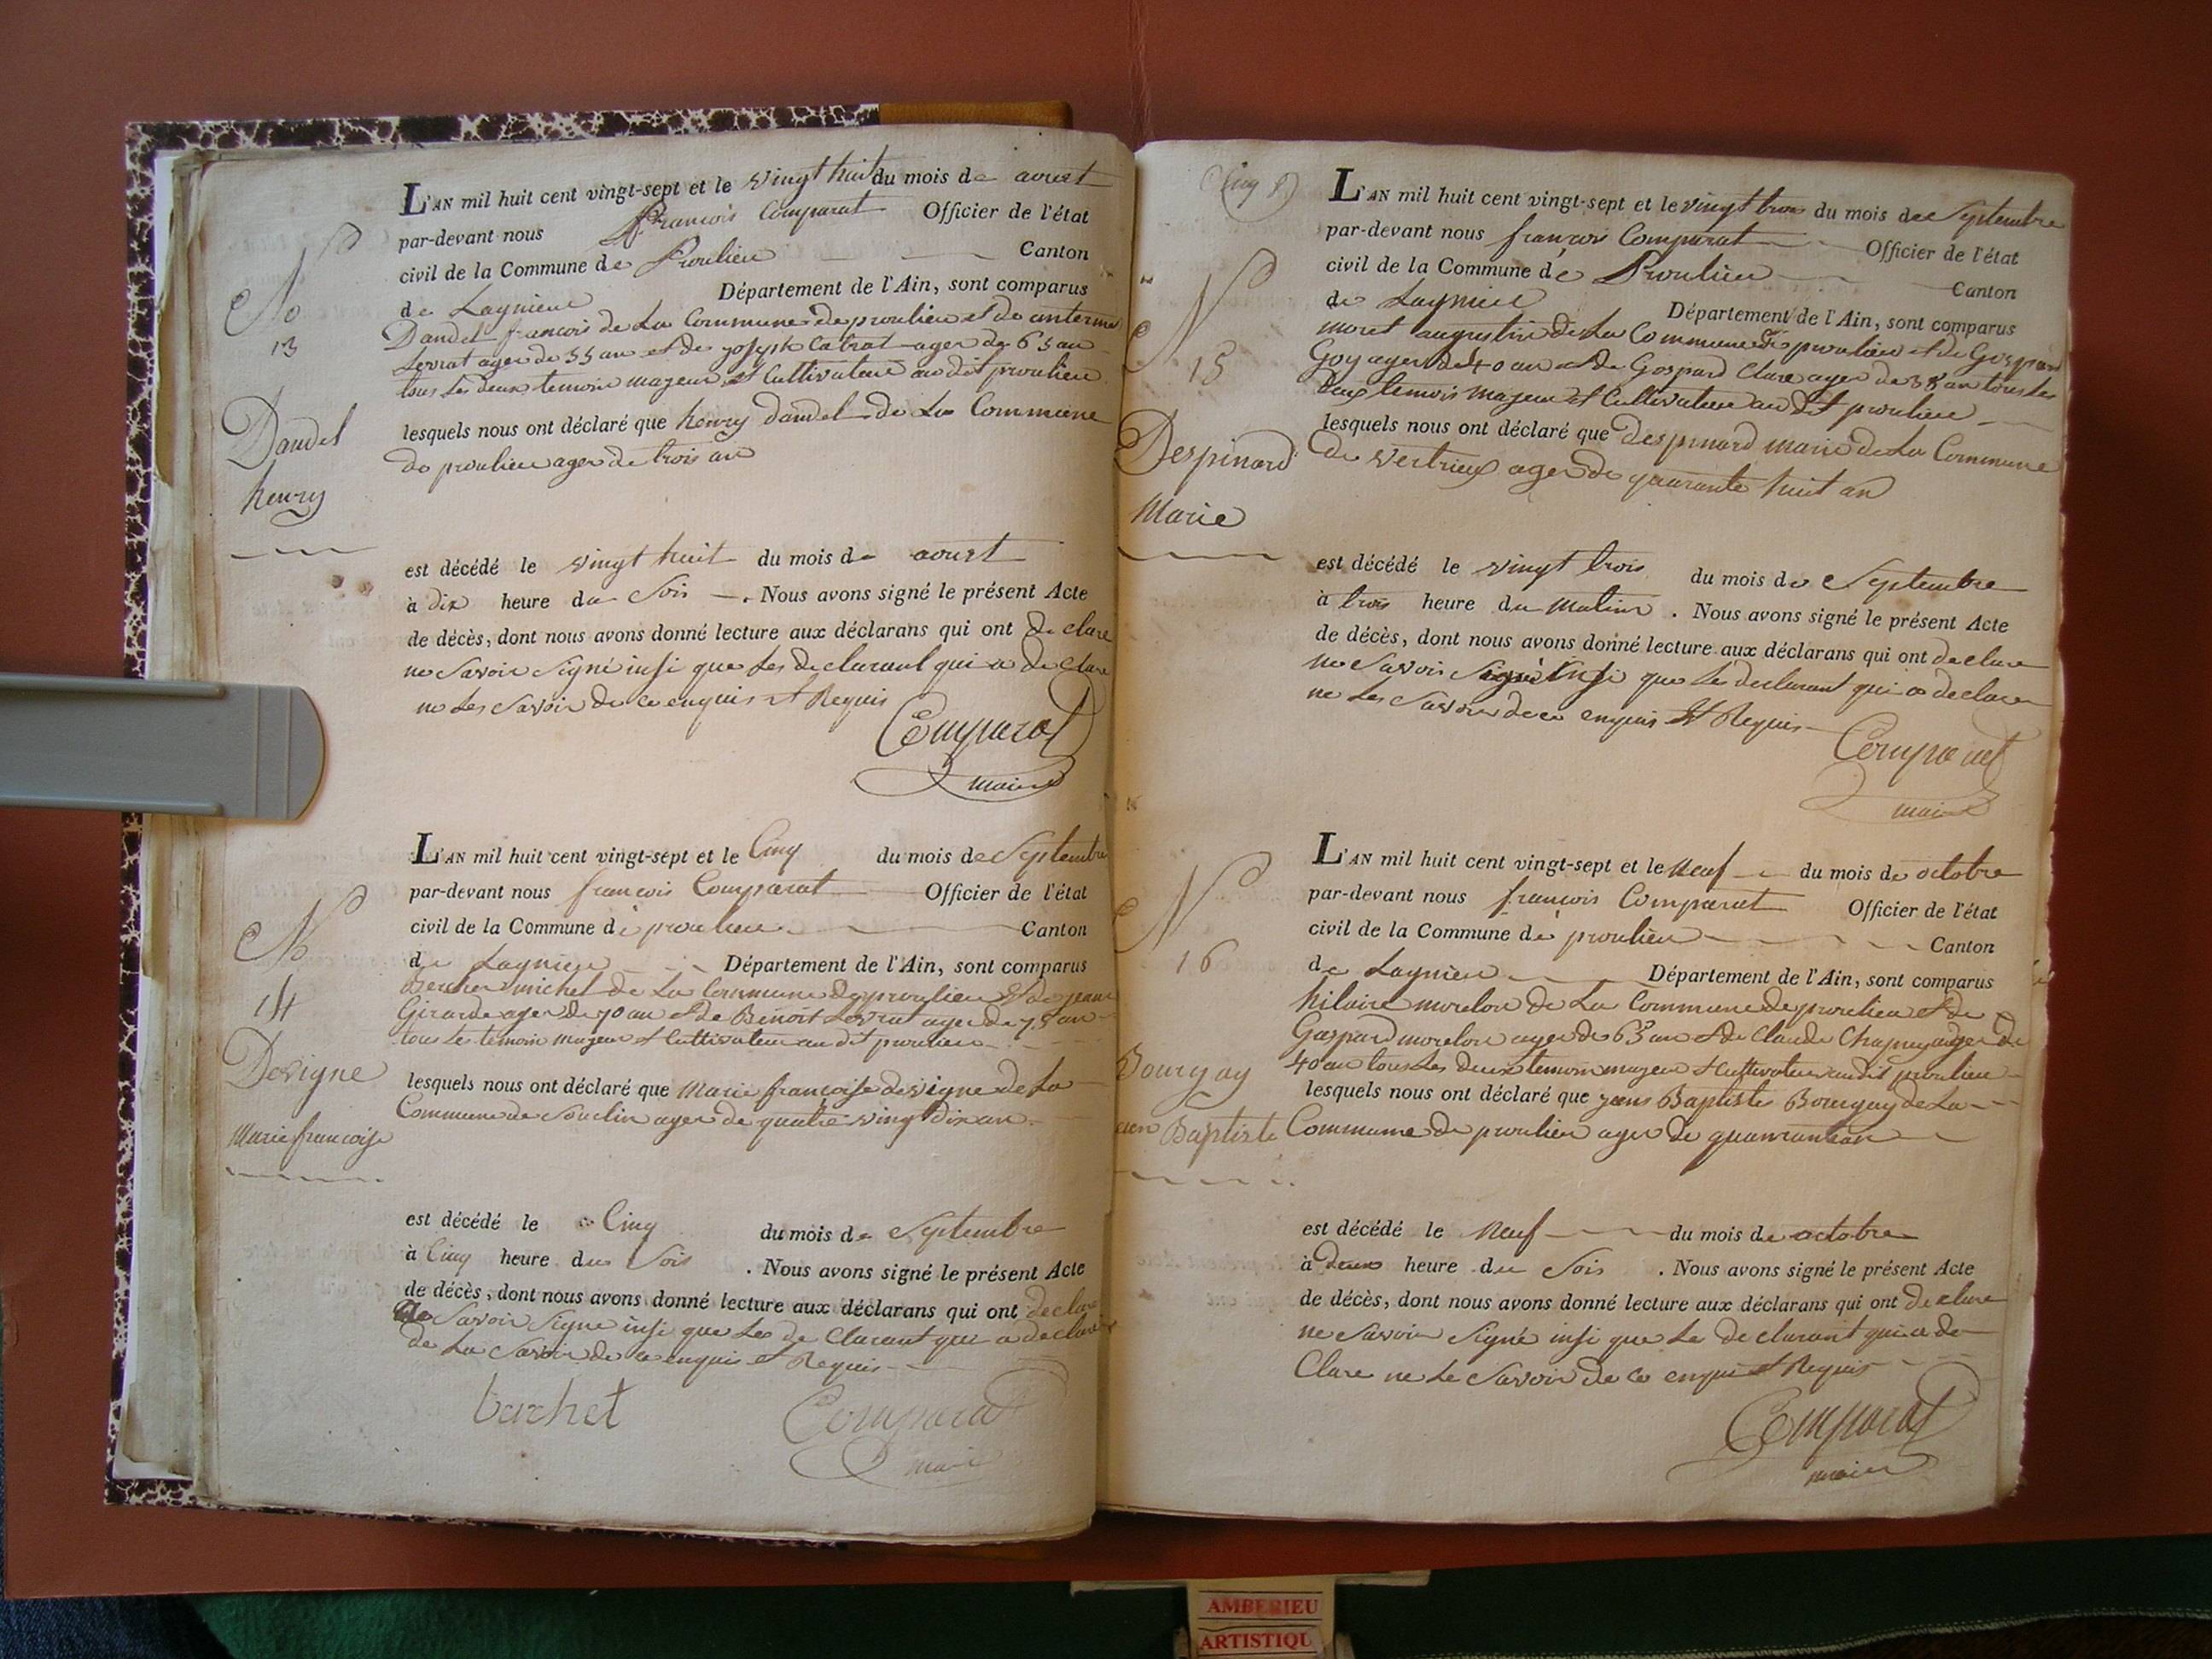 L'AN mil huit cent vingt-sept et le vingt huit du mois de aoust
par-devant nous francois Comparat Officier de l'état
civil de la Commune de Proulieu Canton
de Lagnieu Département de l'Ain, sont comparus
Dandel francois de La Commune de proulieu et de
ager de 55 an et de joseph Cabrat ager de 65 an
tous Les deux temoin mageur et Cultivateur au dit proulieu
No
13
Dandel
henry
lesquels nous ont déclaré que henry dandel de La Commune
de proulieu ager de trois an
est décédé le vingt huit du mois de aoust
à dix heure du Soir . Nous avons signé le présent Acte
de décès, dont nous avons donné lecture aux déclarans qui ont de clare
ne Savoir Signé insi que Les declarant qui a de clare
ne Les Savoir de ce enquis et Requis
Comparat
maire
L'AN mil huit cent vingt-sept et le Cinq du mois de Septembre
par-devant nous francois Comparat Officier de l'état
civil de la Commune de proulieu Canton
de Lagnieu Département de l'Ain, sont comparus
michel de La Commune de proulieu et de jean
Girard ager de 70 an et de Benoit Lovrat ager de 75 an
tous Les temoin mageur et Cultivateur au dit proulieu
No
14
Devigne
Marie francoise
lesquels nous ont déclaré que Marie françoise devigne de La
Commune de Souclin ager de quatre vingt dix an
est décédé le Cinq du mois de Septembre
à Cinq heure du Soir . Nous avons signé le présent Acte
de décès, dont nous avons donné lecture aux déclarans qui ont declare
Savoir Signe insi que Les de Clarant qui a declare
de La Savoir de ce enquis et Requis
barhet Comparat
maire
L'AN mil huit cent vingt-sept et le vingt trois du mois de Septembre
par-devant nous françois Comparat Officier de l'état
civil de la Commune de Proulieu Canton
de Lagnieu Département de l'Ain, sont comparus
moret augustin de La Commune de proulieu et de Gospard
Goy ager de 40 an et de Gospard Clare ager de 38 an tous Les
deux temoin mageur et Cultivateur au dit proulieu
N
15
Despinard
Marie
lesquels nous ont déclaré que despinard marie de La Commune
de vertrieux ager de quarante huit an
est décédé le vingt trois du mois de Septembre
à trois heure du matin . Nous avons signé le présent Acte
de décès, dont nous avons donné lecture aux déclarans qui ont declare
ne Savoir Signé insi que Le declarant qui a declare
ne Les Savoir de ce enquis et Requis
Comparat
maire
L'AN mil huit cent vingt-sept et le neuf du mois de octobre
par-devant nous françois Comparat Officier de l'état
civil de la Commune de proulieu Canton
de Lagnieu Département de l'Ain, sont comparus
hilaire morelon de La Commune de proulieu et de
Gaspard morelon ager de 63 an et de Claude Chapuy ager de
40 an tous Les deux temoin mageur et Cultivateur au dit proulieu
N
16
Bourgay
Baptiste
lesquels nous ont déclaré que jean Baptiste Bourgay de La
Commune de proulieu ager de quarante an
est décédé le neuf du mois de octobre
à deux heure du Soir . Nous avons signé le présent Acte
de décès, dont nous avons donné lecture aux déclarans qui ont declare
ne Savoir Signé insi que Le declarant qui a de
Clare ne Le Savoir de ce enquis et Requis
Comparat
maire
AMBERIEU
ARTISTIQU